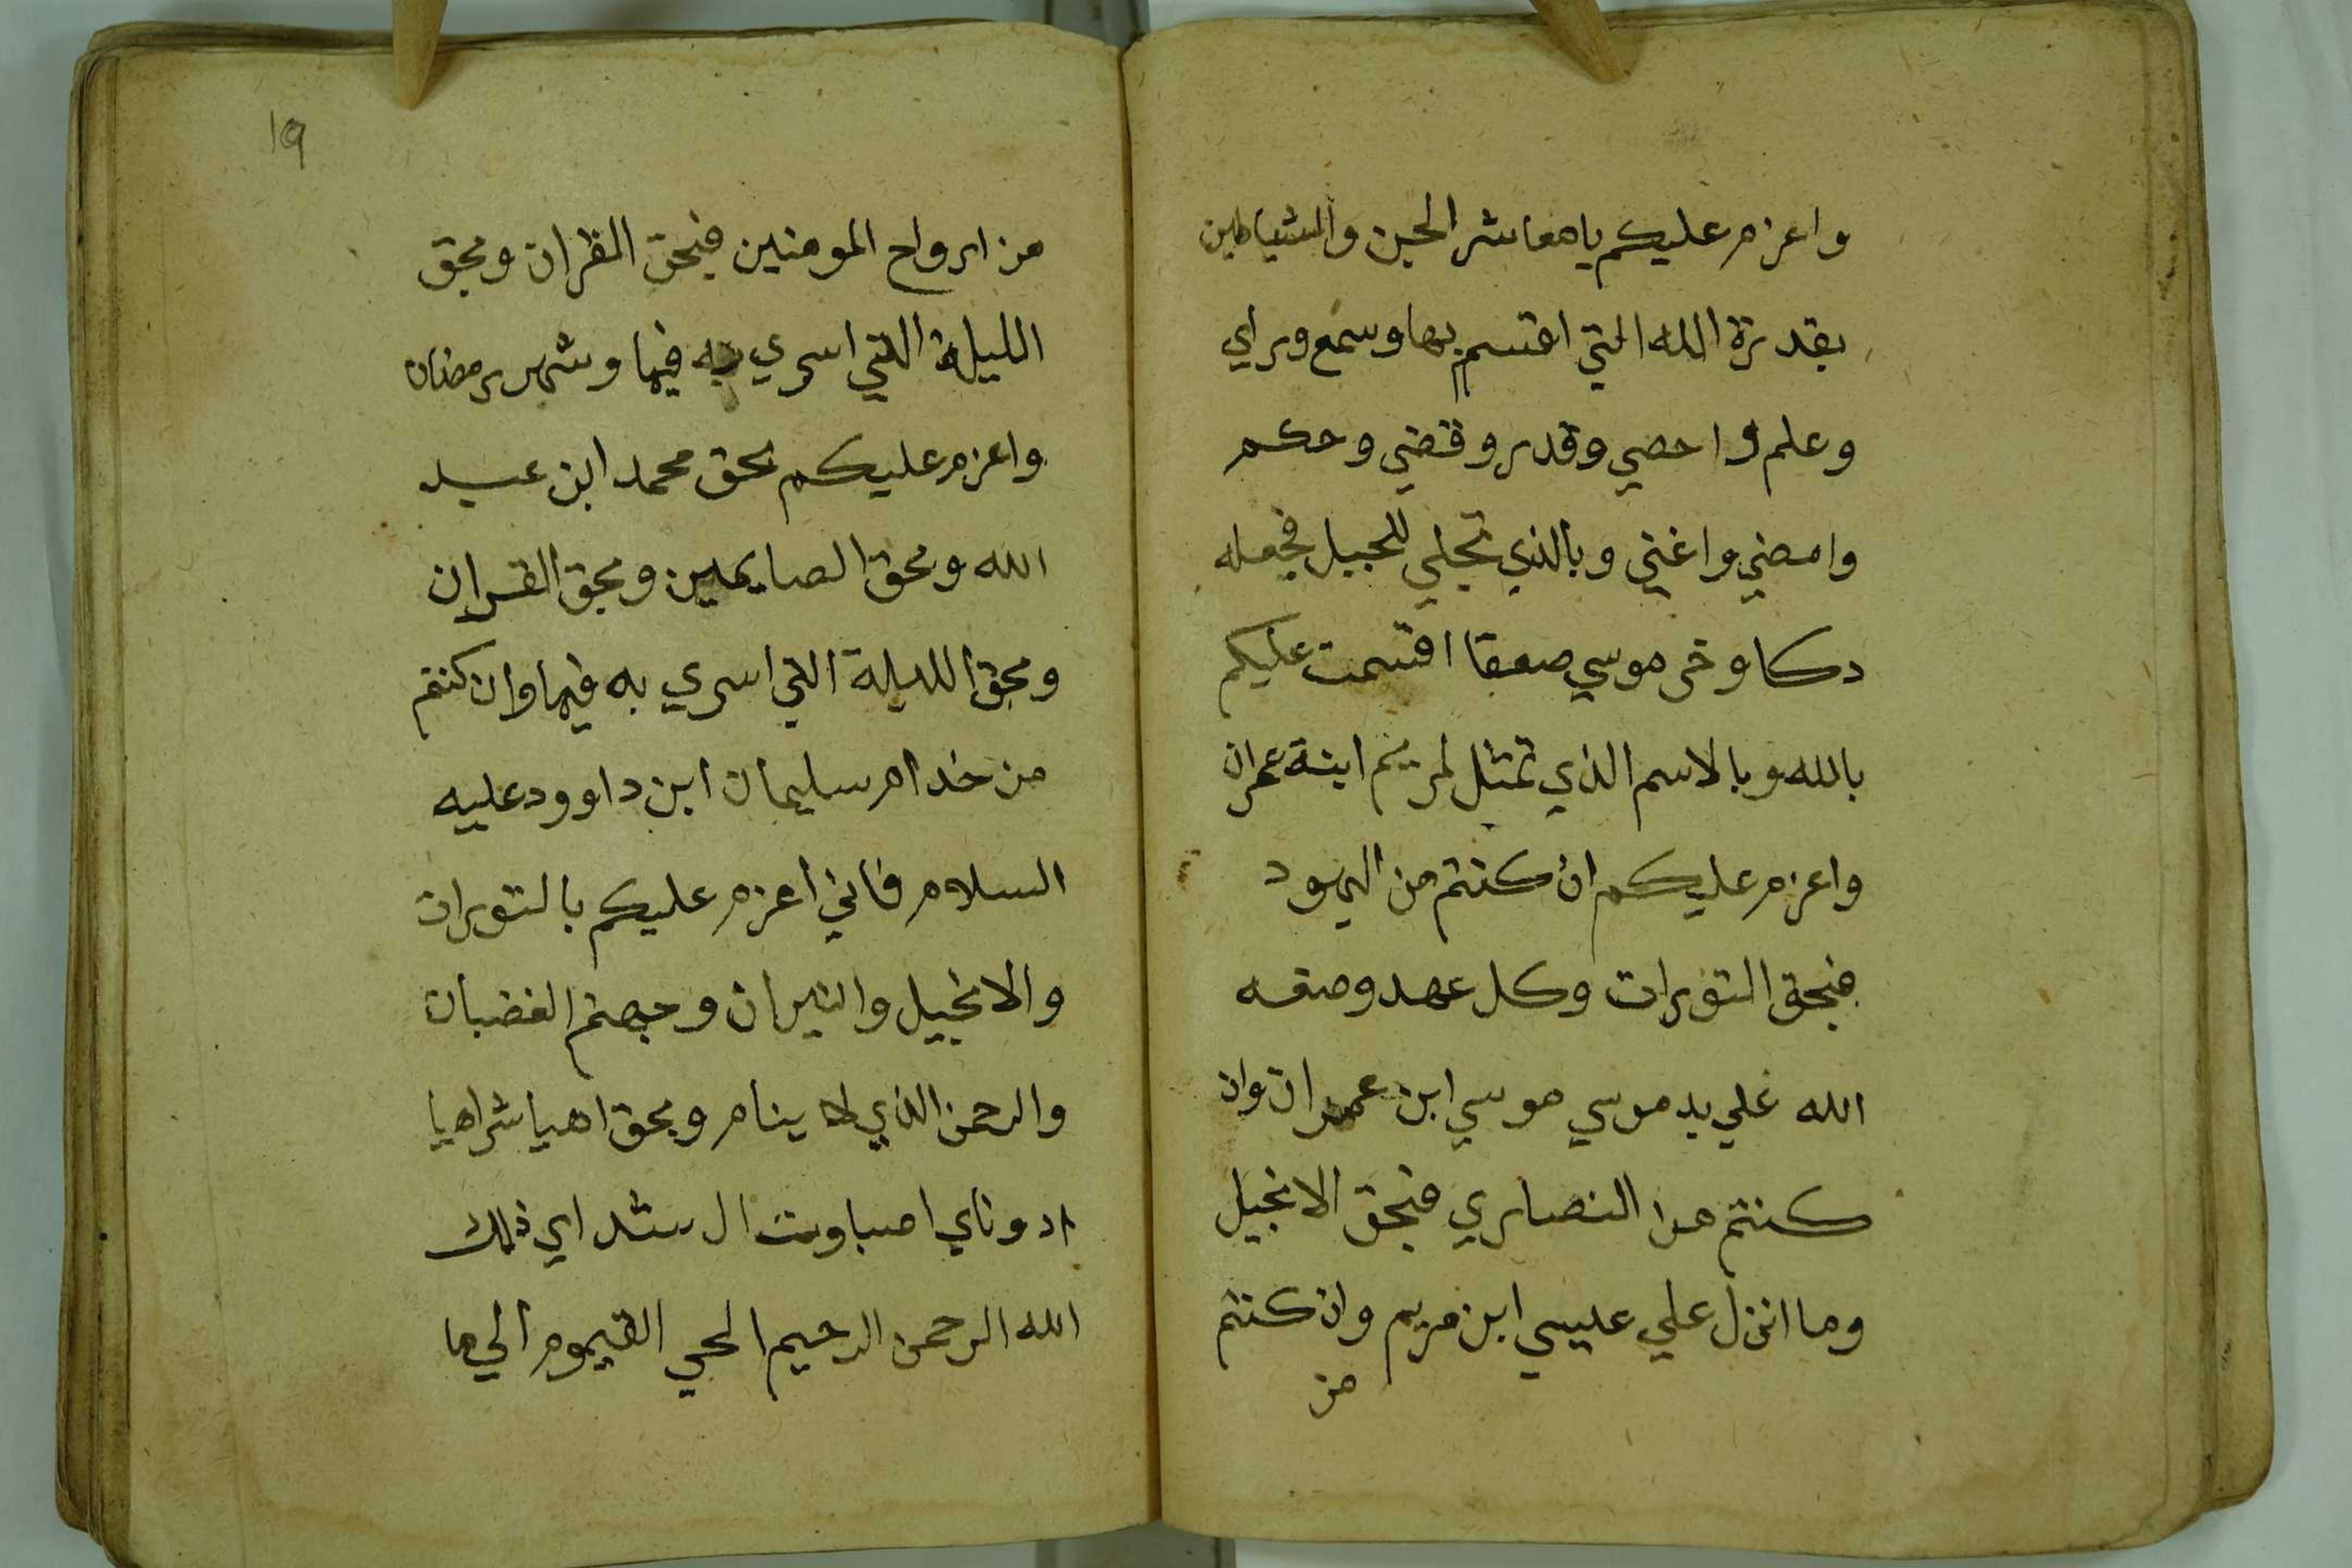 واعزم عليكم يا معاشر الجن والشياطين
بقدرة الله التي اقسم بها وسمع وراي
وعلم واحصي وقدر وقضي وحكم
وامضي واغني وبالذي تجلي للجبل فجعله
دكا وخر موسي صعقا اقسمت عليكم
بالله وبالاسم الذي تمثل لمريم ابنة عمران
واعزم عليكم ان كنتم من اليهود
فبحق التورات وكل عهد وصفه
الله علي يد موسي موسي ابن عمران وان
كنتم من النصاري فبحق الانجيل
وما انزل علي عيسي ابن مريم وان كنتم
من
19
من ارواح المومنين فبحق القران وبحق
الليلة التي اسري به فيها وشهر رمضان
واعزم عليكم بحق محمد ابن عبد
الله وبحق الصايمين وبحق القران
وبحق الليلة التي اسري به فيها وان كنتم
من خدام سليمان ابن داوود عليه
السلام فاني اعزم عليكم بالتورات
والانجيل والنيران وجهنم الغضبان
والرحمن الذي لا ينام وبحق اهيا شراهيا
ادوناي اصباوت ال شداي ذلك
الله الرحمن الرحيم الحي القيوم الي ما